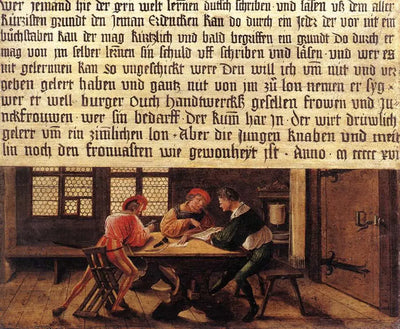 wer jemand hie der gern welt lernnen dütsch schriben und läsen uß dem aller
kürtzisten grundt den jeman Erdencken kan do durch ein jeder der vor nit ein
büchstaben kan der mag kürtzlich und bald begriffen ein grundt do durch er
mag von jm selber lernnen sin schuld uff schriben und läsen und wer es
nit gelernnen kan so ungeschickt were Den will ich um nüt und ver
geben gelert haben und gantz nüt von jm zů lon nemen er syg
wer er well burger Ouch handtwercks gesellen frowen und ju
nckfrouwen wer sin bedarff Der kum har jn · der wirt drüwlich
gelert um ein zimlichen lon · Aber die jungen knaben und meit
lin noch den fronuasten wie gewonheyt ist · Anno · m ccccc xvi